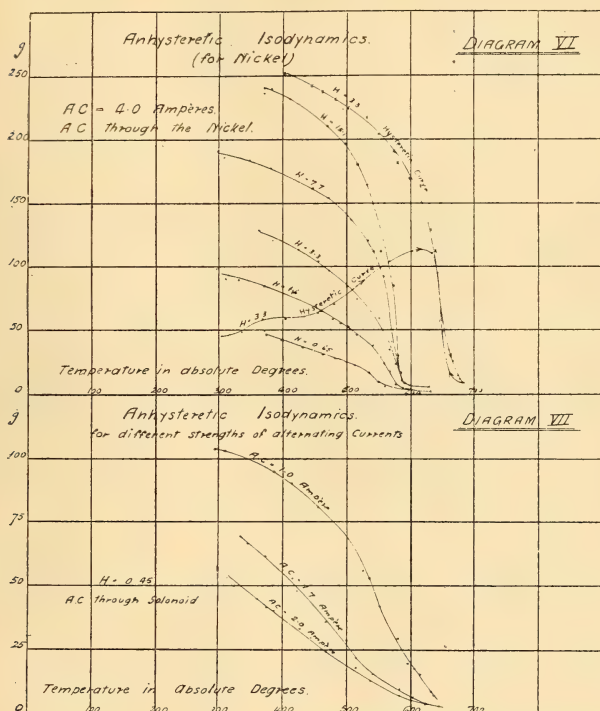 g
Anhysteretic Isodynamics.
(for Nickel)
DIAGRAM VI
AC = 4.0 Ampères.
AC through the Nickel.
250
200
150
100
50
0
H = 33
Hysteretic Curve
H = 7.7
H = 3.3
H = 33
Hysteretic Curve
H = 0.45
Temperature in absolute Degrees.
100 200 300 400 500 600 700
g
Anhysteretic Isodynamics.
for different strengths of alternating Currents
DIAGRAM VII
100
75
50
25
0
AC = 1.0 Ampère
AC = 1.7 Ampère
AC = 2.0 Ampère
H = 0.45
A.C through Solonoid
Temperature in Absolute Degrees.
100 200 300 400 500 600 700